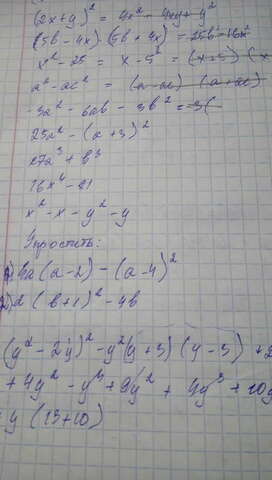 (2x+y)² = 4x² - 4xy + y²
(5b - 4x) · (5b + 4x) = 25b - 16x²
x² - 25 = x - 5² = (x+5) (x
a² - ac² = (a - ac) (a + ac)
-3a² - 6ab - 3b² = -3(
25a² - (a+3)²
27a³ + b³
16x⁴ - 81
x² - x - y² - y
Упростить:
1) 4a(a-2) - (a-4)²
2) 2(b+1)² - 4b
(y² - 2y)² - y²(y+3)(y-3) + 2
+ 4y² - y³ + 9y² + 4y³ + 10y
y (13+10)